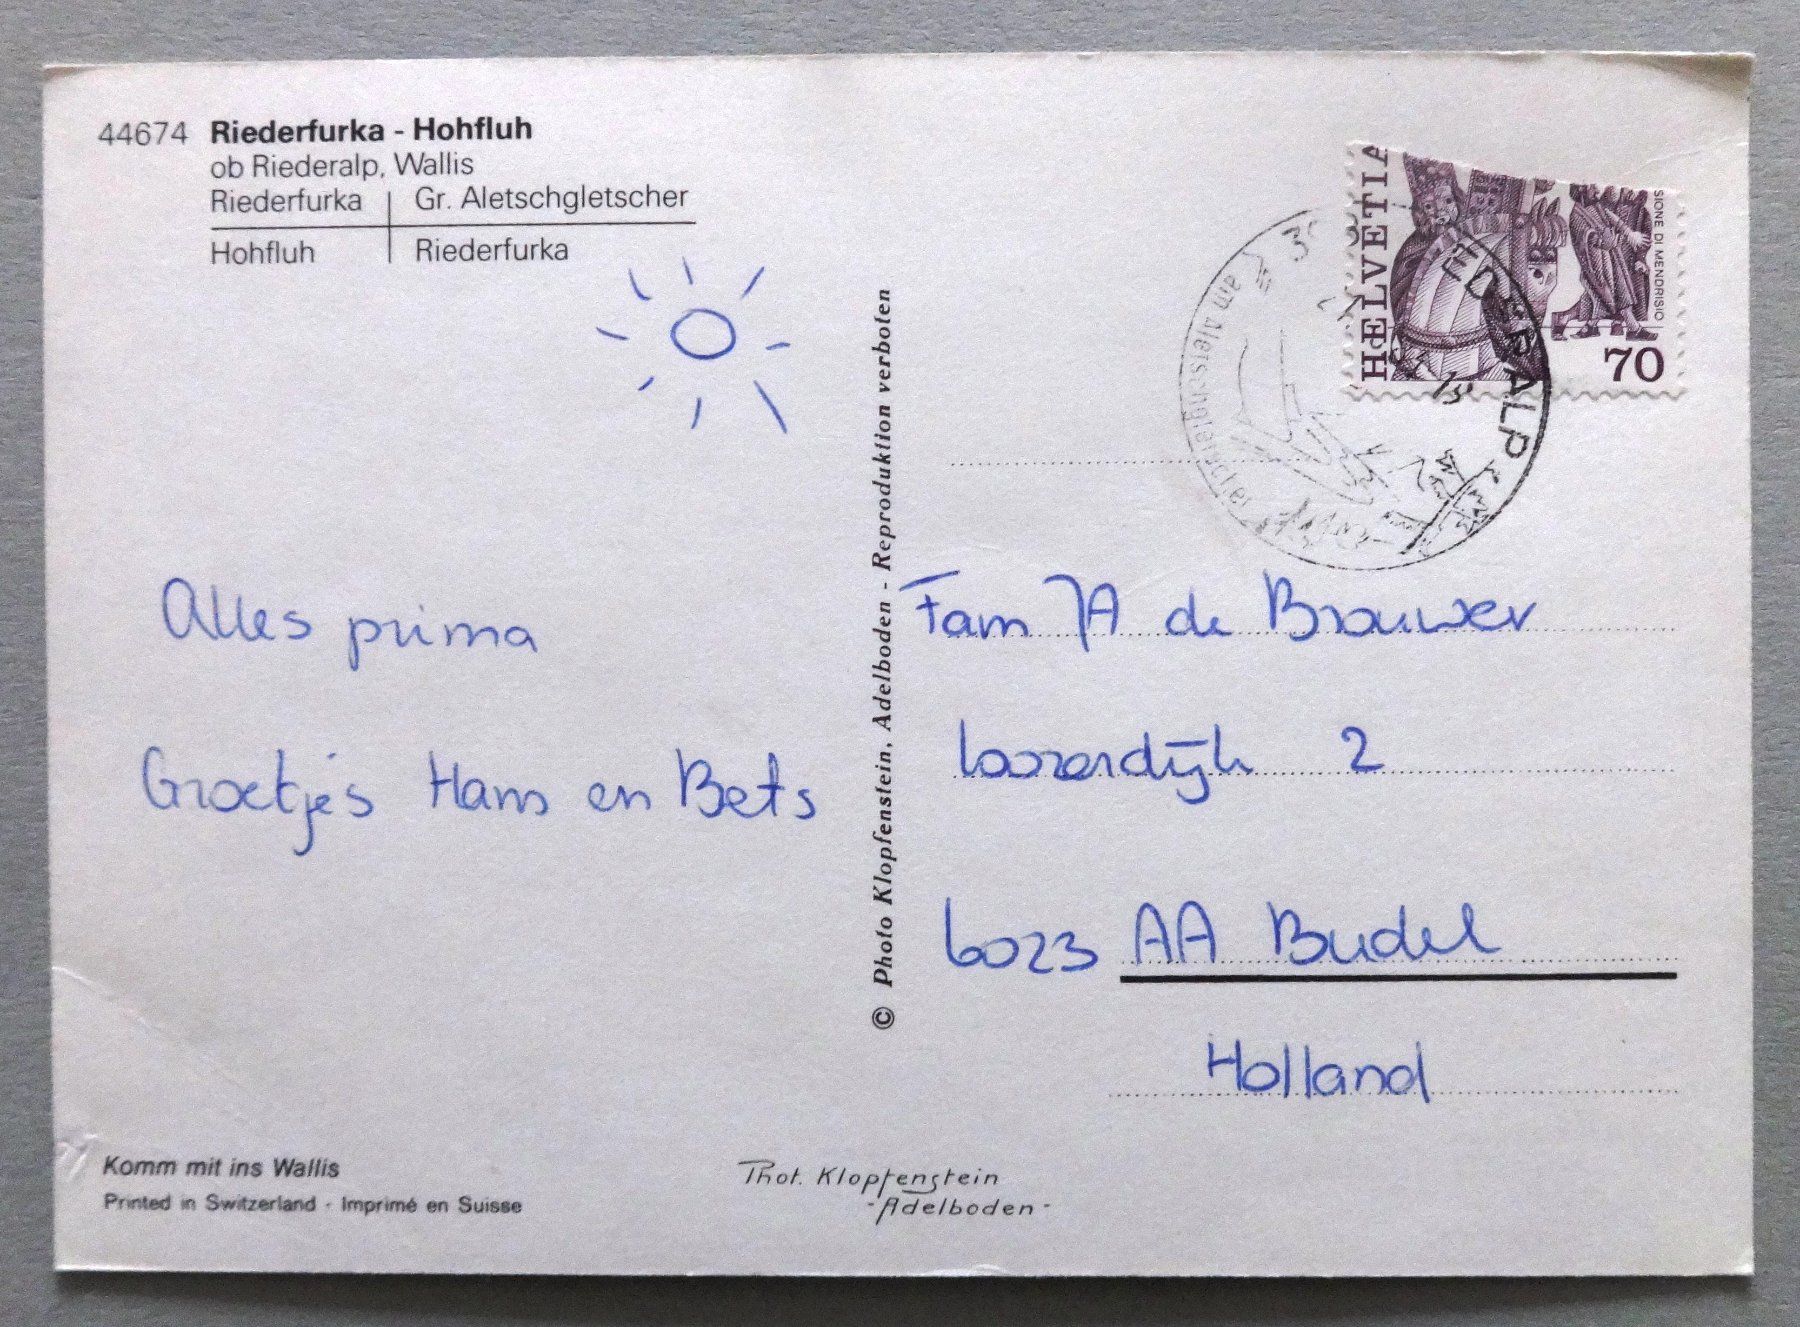 44674 Riederfurka - Hohfluh
ob Riederalp, Wallis
Riederfurka Gr. Aletschgletscher
Hohfluh Riederfurka
Alles prima
Groetjes Hans en Bets
© Photo Klopfenstein, Adelboden - Reproduktion verboten
HELVETIA
SIONE DI MENDRISIO
70
EDERALP
am Aletschgletscher
Fam JA de Brouwer
2
6023 AA Budel
Holland
Komm mit ins Wallis
Printed in Switzerland · Imprimé en Suisse
Phot. Klopfenstein
- Adelboden -